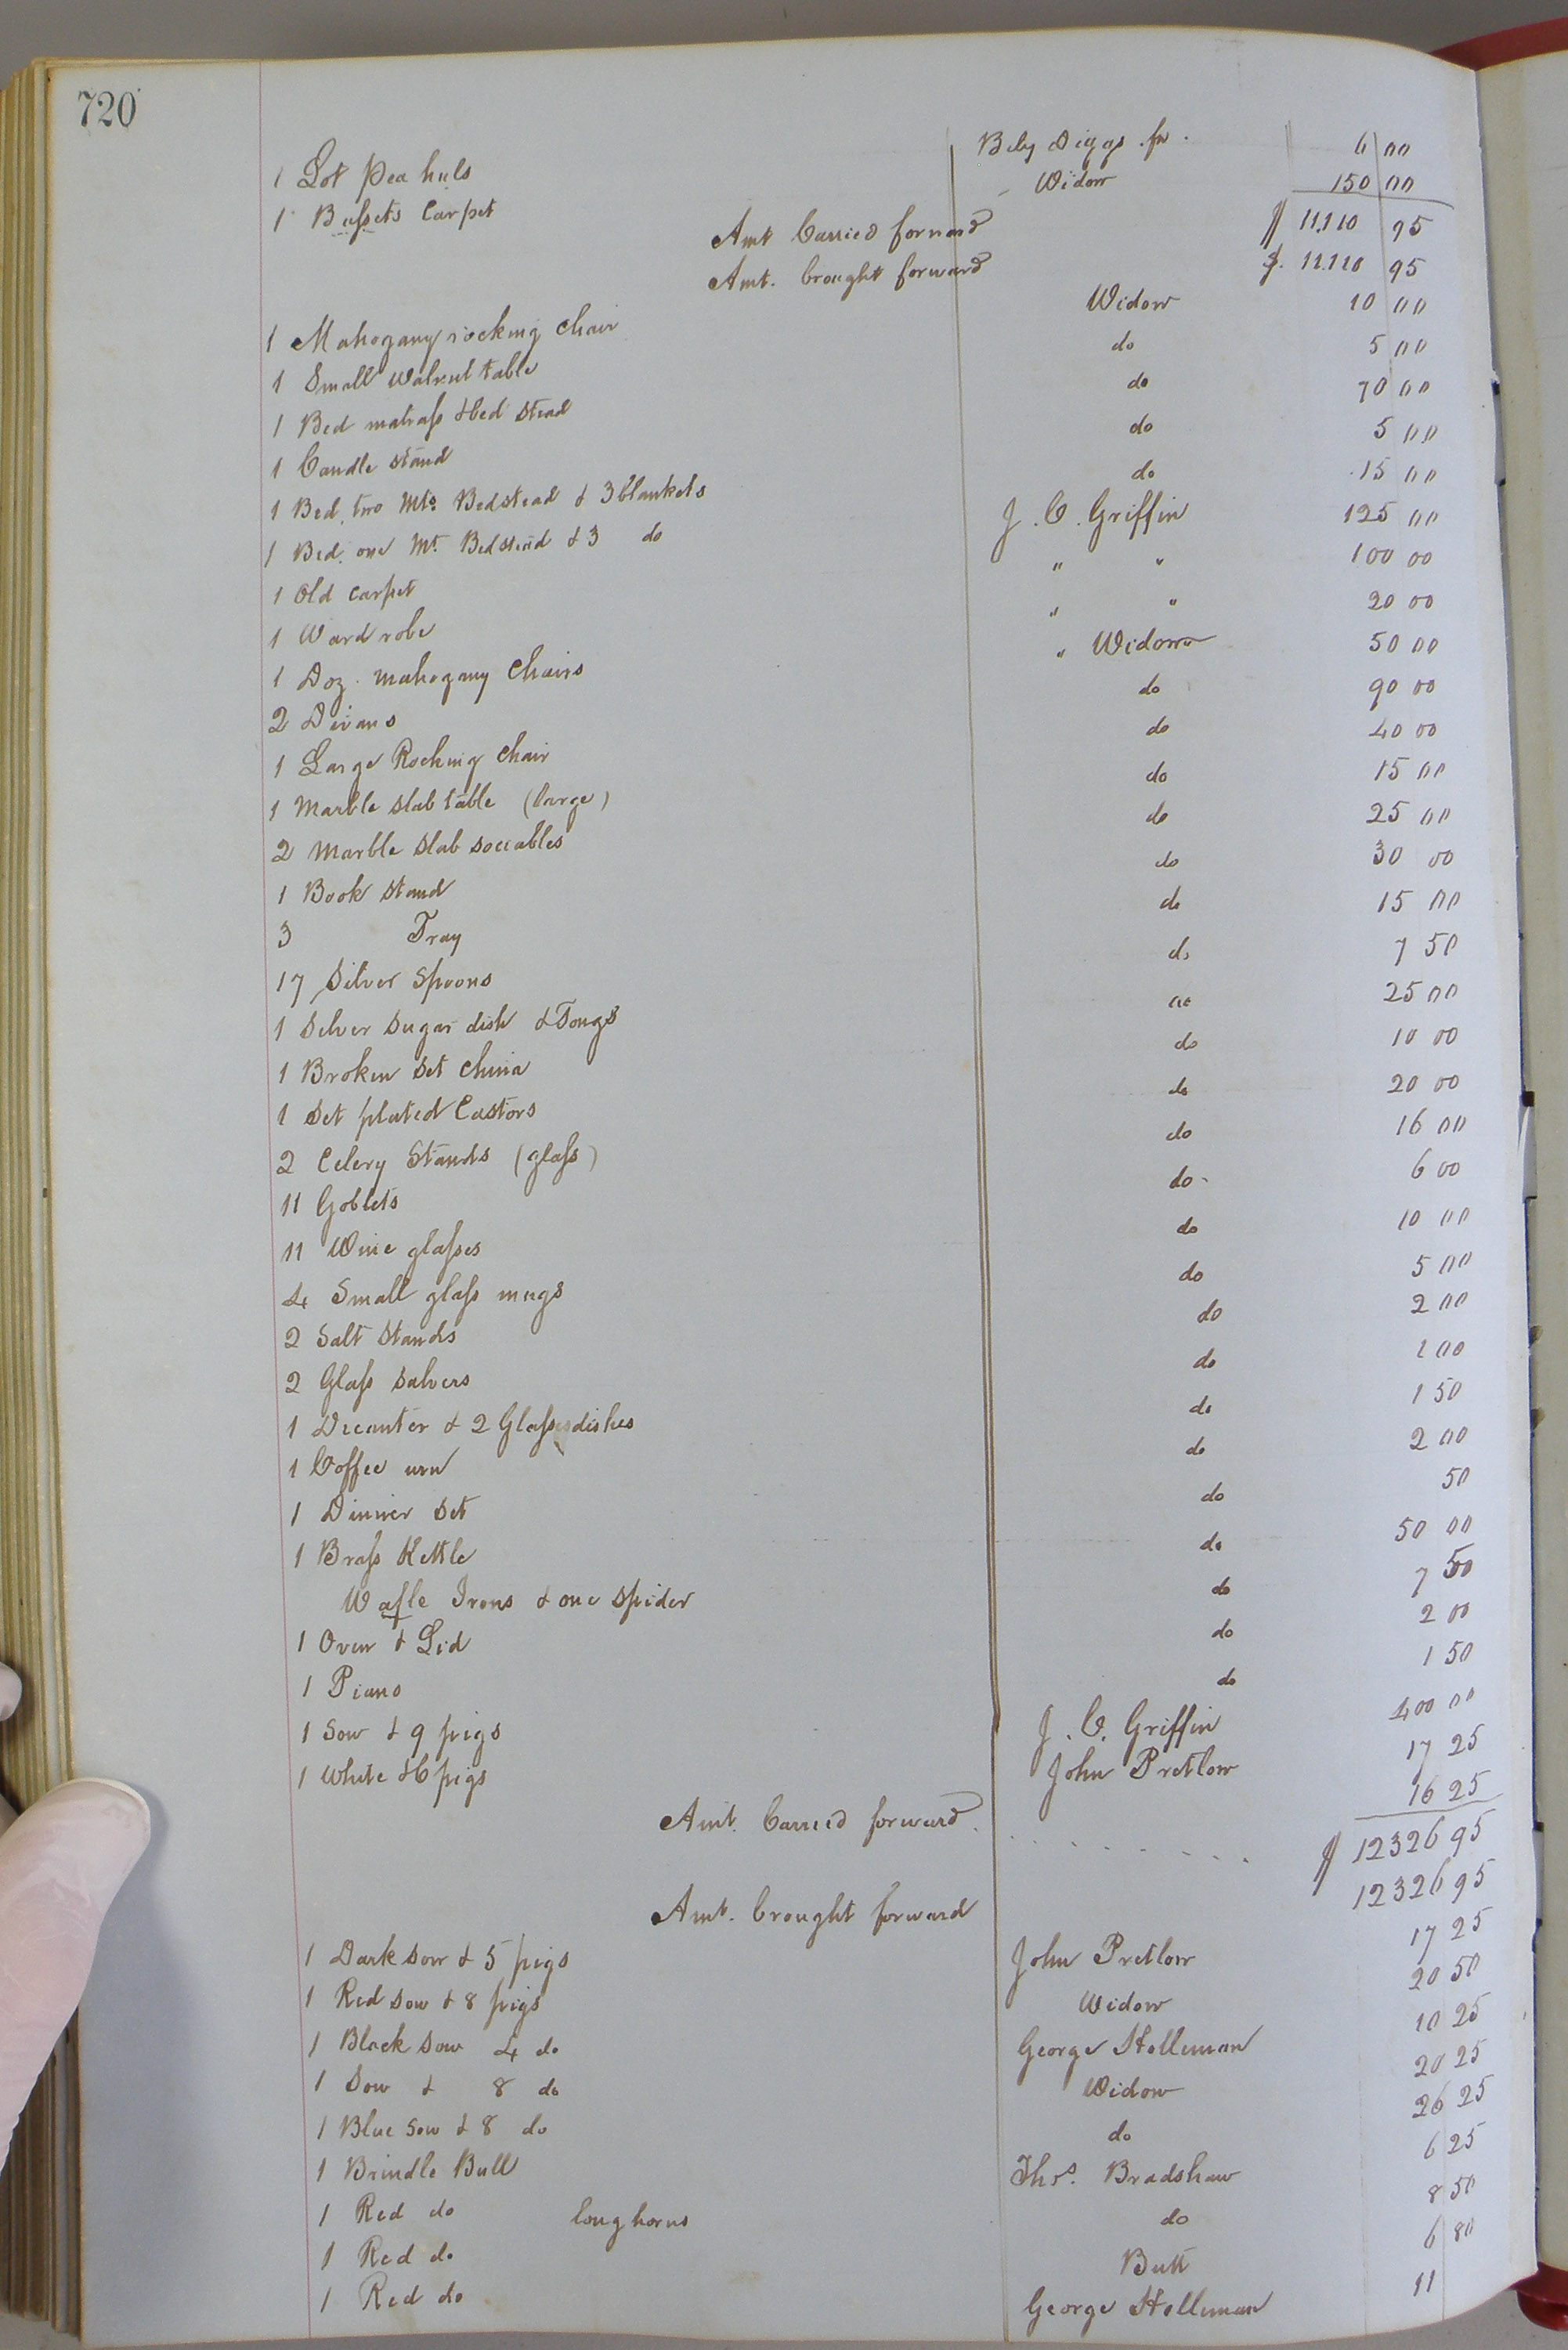 720
1 Lot Pea huls Beby Diggs fr. 6 00
1 Bussets Carpet Widow 150 00
Amt Carried forward $ 11,110 95
Amt. brought forward $. 11.110 95
1 Mahogany rocking Chair Widow 10 00
1 Small Walnut table do 5 00
1 Bed matrass & bed stead do 70 00
1 Candle stand do 5 00
1 Bed, two Mts. Bedstead & 3 blankets do 15 00
1 Bed, one Mt. Bedstead & 3 do J. C. Griffin 125 00
1 Old Carpet " " 100 00
1 Ward robe " " 20 00
1 Doz. mahogany Chairs " Widow " 50 00
2 Divans do 90 00
1 Large Rocking Chair do 40 00
1 Marble slab table (large) do 15 00
2 Marble slab sociables do 25 00
1 Book stand do 30 00
3 Tray do 15 00
17 Silver Spoons do 7 50
1 Silver Sugar dish & Tongs do 25 00
1 Broken Set China do 10 00
1 Set plated Castors do 20 00
2 Celery Stands (glass) do 16 00
11 Goblets do 6 00
11 Wine glasses do 10 00
4 Small glass mugs do 5 00
2 Salt Stands do 2 00
2 Glass Salvers do 1 00
1 Decanter & 2 Glass dishes do 1 50
1 Coffee urn do 2 00
1 Dinner Set do 50
1 Brass Kettle do 50 00
Wafle Irons & one Spider do 7 50
1 Oven & Lid do 2 00
1 Piano do 1 50
1 Sow & 9 pigs J. C. Griffin 400 00
1 White & 6 pigs John Pretlow 17 25
16 25
Amt. Carried forward $ 12326 95
Amt. brought forward 12326 95
1 Dark Sow & 5 pigs John Pretlow 17 25
1 Red Sow & 8 pigs Widow 20 50
1 Black Sow 4 do George Holleman 10 25
1 Sow & 8 do Widow 20 25
1 Blue Sow & 8 do do 26 25
1 Brindle Bull Thos. Bradshaw 6 25
1 Red do long horns do 8 50
1 Red do Butt 6 80
1 Red do George Holleman 11